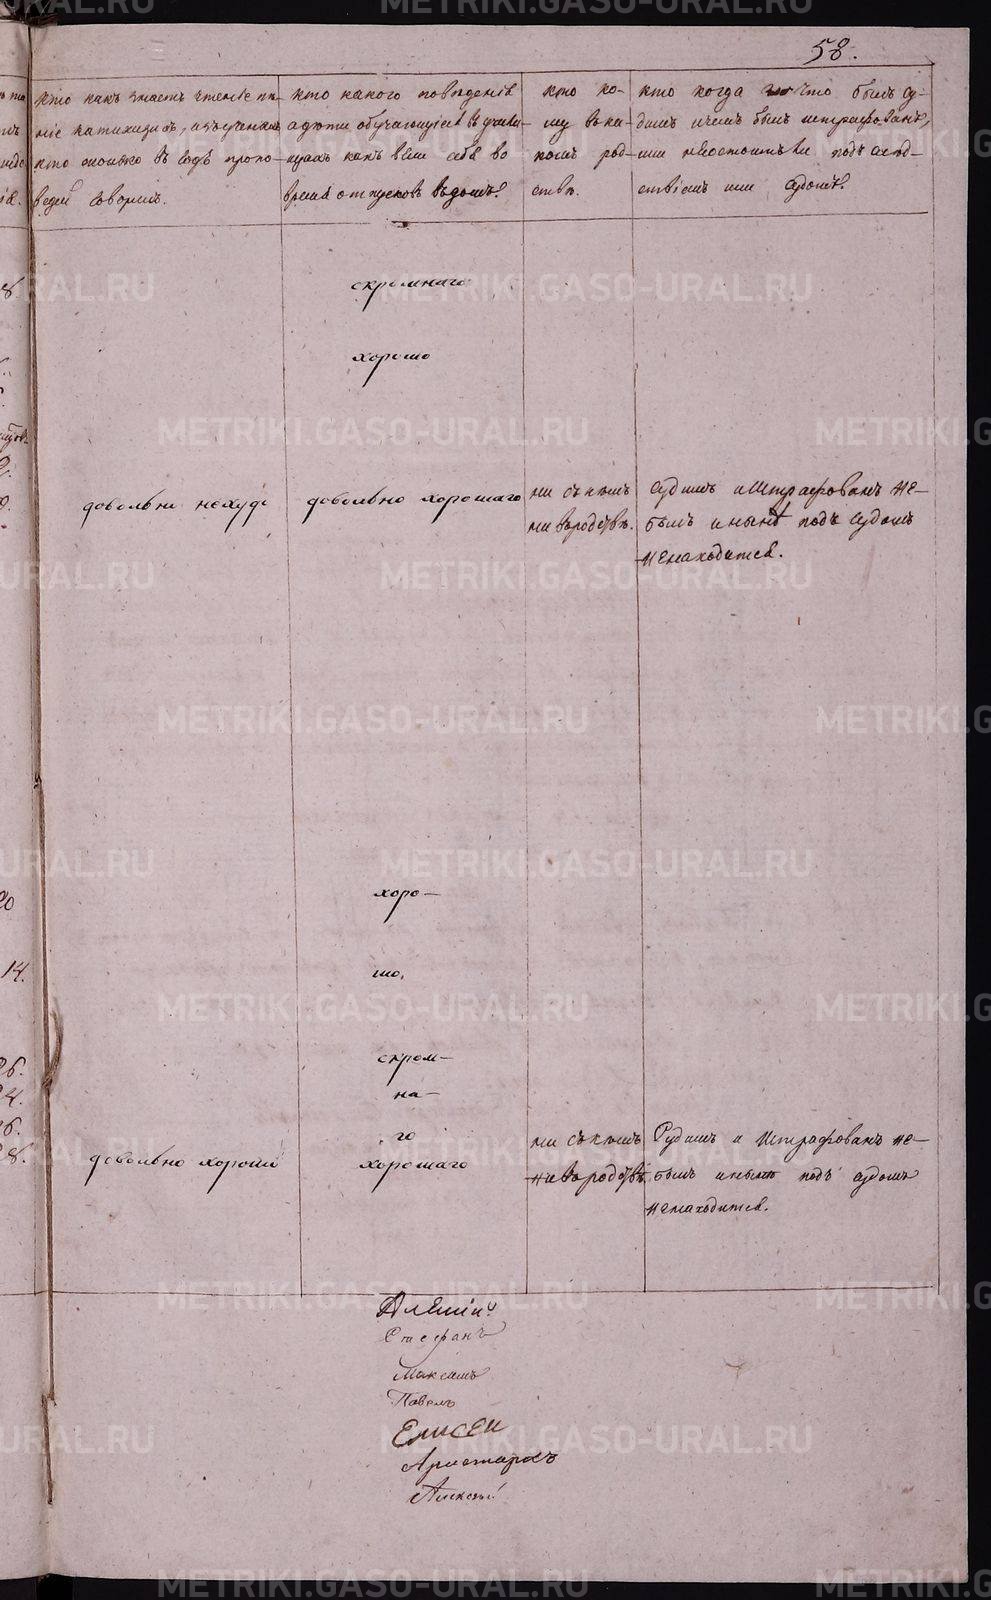 58.
кто какъ знаетъ чтенiе пи-
нiе катихизисъ, и изъученыхъ
кто сколько въ годъ пропо-
ведей говоритъ.
кто какого поведенiя
а дѣти обучающiяся въ учили-
щахъ какъ вѣли себя во
время отпусковъ въ домъ?
кто ко-
му въ ка-
комъ род-
ствѣ.
кто когда за что былъ су-
димъ и чемъ былъ штрафованъ,
или не состоитъ ли подъ слѣд-
ствiемъ или судомъ?
скромнаго
хорошо
довольно нехудо
довольно хорошаго
ни съ кѣмъ
ни въ родствѣ.
Судимъ и штрафованъ не-
былъ и нынѣ подъ судомъ
не находится.
хоро-
шо.
скром-
на-
го
довольно хорошо
хорошаго
ни съ кѣмъ
ни въ родствѣ.
Судимъ и штрафованъ не-
былъ и нынѣ подъ судомъ
не находится.
8.
0.
20
14.
26.
24.
26.
28.
Стефанъ
Максимъ
Павелъ
Елисей
Аристархъ
Алексѣй
METRIKI.GASO-URAL.RU